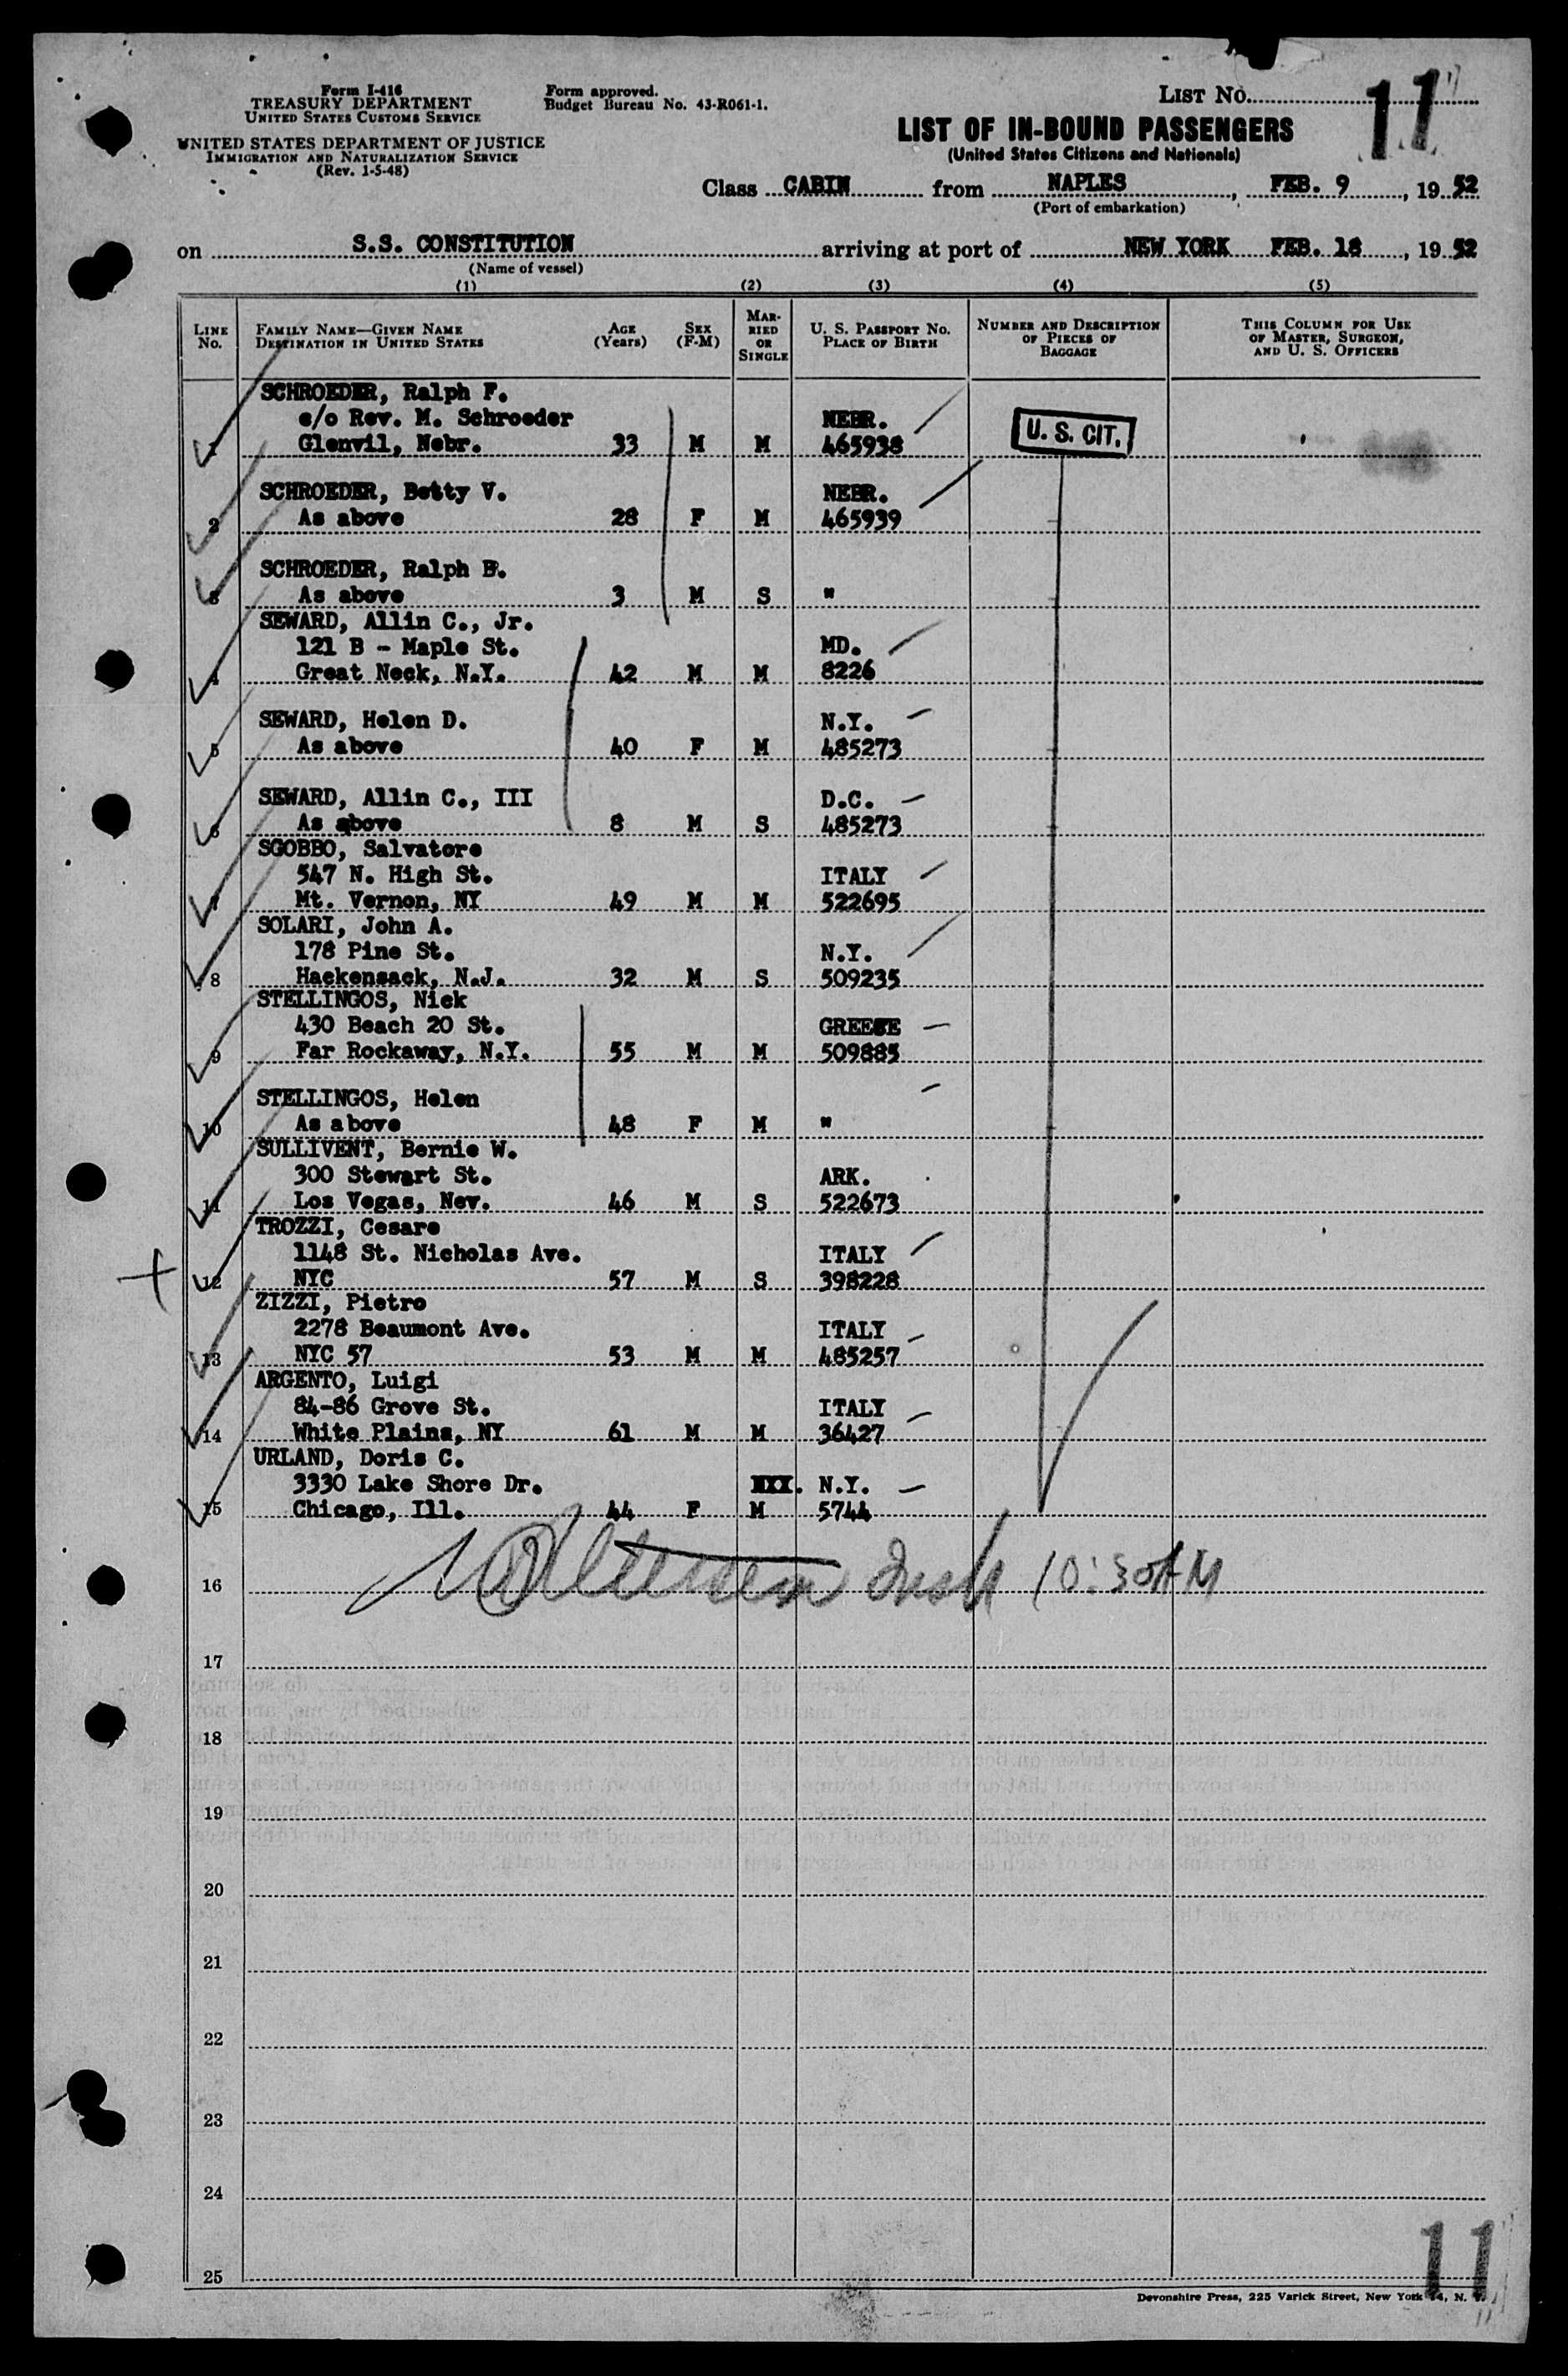 Form I-416
TREASURY DEPARTMENT
UNITED STATES CUSTOMS SERVICE
UNITED STATES DEPARTMENT OF JUSTICE
IMMIGRATION AND NATURALIZATION SERVICE
(Rev. 1-5-48)
Form approved.
Budget Bureau No. 43-R061-1.
LIST NO. 11
LIST OF IN-BOUND PASSENGERS
(United States Citizens and Nationals)
Class CABIN from NAPLES, FEB. 9, 19 52
(Port of embarkation)
on S.S. CONSTITUTION arriving at port of NEW YORK FEB. 18, 19 52
(Name of vessel)
(1) (2) (3) (4) (5)
LINE No. FAMILY NAME—GIVEN NAME DESTINATION IN UNITED STATES AGE (Years) SEX (F-M) MARRIED OR SINGLE U. S. PASSPORT NO. PLACE OF BIRTH NUMBER AND DESCRIPTION OF PIECES OF BAGGAGE THIS COLUMN FOR USE OF MASTER, SURGEON, AND U. S. OFFICERS
SCHROEDER, Ralph F.
c/o Rev. M. Schroeder NEBR. U. S. CIT.
1 Glenvil, Nebr. 33 M M 465938
SCHROEDER, Betty V. NEBR.
2 As above 28 F M 465939
SCHROEDER, Ralph B.
3 As above 3 M S "
SEWARD, Allin C., Jr.
121 B - Maple St. MD.
4 Great Neck, N.Y. 42 M M 8226
SEWARD, Helen D. N.Y.
5 As above 40 F M 485273
SEWARD, Allin C., III D.C.
6 As above 8 M S 485273
SGOBBO, Salvatore
547 N. High St. ITALY
7 Mt. Vernon, NY 49 M M 522695
SOLARI, John A.
178 Pine St. N.Y.
8 Hackensack, N.J. 32 M S 509235
STELLINGOS, Nick
430 Beach 20 St. GREECE
9 Far Rockaway, N.Y. 55 M M 509885
STELLINGOS, Helen
10 As above 48 F M "
SULLIVENT, Bernie W.
300 Stewart St. ARK.
11 Los Vegas, Nev. 46 M S 522673
TROZZI, Cesare
1148 St. Nicholas Ave. ITALY
12 NYC 57 M S 398228
ZIZZI, Pietro
2278 Beaumont Ave. ITALY
13 NYC 57 53 M M 485257
ARGENTO, Luigi
84-86 Grove St. ITALY
14 White Plains, NY 61 M M 36427
URLAND, Doris C.
3330 Lake Shore Dr. N.Y.
15 Chicago, Ill. 44 F M 5744
16 10:30AM
17
18
19
20
21
22
23
24
25
11
Devonshire Press, 225 Varick Street, New York 14, N. Y.